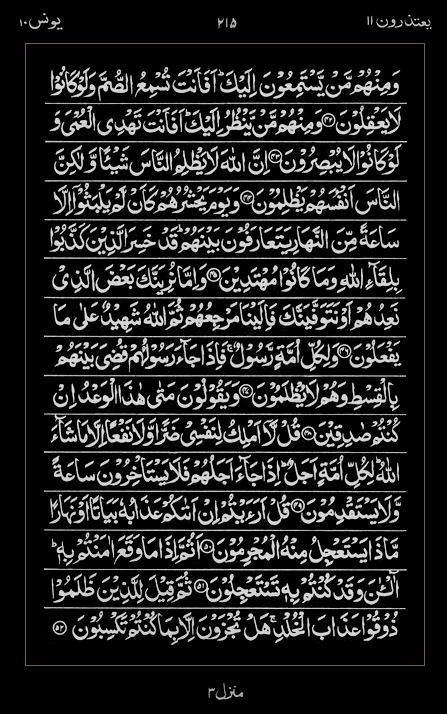 یعتذرون ۱۱ ۲۱۵ یونس ۱۰
وَمِنْهُمْ مَّنْ يَّسْتَمِعُوْنَ اِلَيْكَ ؕ اَفَاَنْتَ تُسْمِعُ الصُّمَّ وَلَوْ كَانُوْا
لَا يَعْقِلُوْنَ ﴿۴۲﴾ وَمِنْهُمْ مَّنْ يَّنْظُرُ اِلَيْكَ ؕ اَفَاَنْتَ تَهْدِى الْعُمْىَ وَ
لَوْ كَانُوْا لَا يُبْصِرُوْنَ ﴿۴۳﴾ اِنَّ اللّٰهَ لَا يَظْلِمُ النَّاسَ شَيْـًٔا وَّلٰكِنَّ
النَّاسَ اَنْفُسَهُمْ يَظْلِمُوْنَ ﴿۴۴﴾ وَيَوْمَ يَحْشُرُهُمْ كَاَنْ لَّمْ يَلْبَثُوْۤا اِلَّا
سَاعَةً مِّنَ النَّهَارِ يَتَعَارَفُوْنَ بَيْنَهُمْ ؕ قَدْ خَسِرَ الَّذِيْنَ كَذَّبُوْا
بِلِقَآءِ اللّٰهِ وَمَا كَانُوْا مُهْتَدِيْنَ ﴿۴۵﴾ وَاِمَّا نُرِيَنَّكَ بَعْضَ الَّذِىْ
نَعِدُهُمْ اَوْ نَتَوَفَّيَنَّكَ فَاِلَيْنَا مَرْجِعُهُمْ ثُمَّ اللّٰهُ شَهِيْدٌ عَلٰى مَا
يَفْعَلُوْنَ ﴿۴۶﴾ وَلِكُلِّ اُمَّةٍ رَّسُوْلٌ ۚ فَاِذَا جَآءَ رَسُوْلُهُمْ قُضِىَ بَيْنَهُمْ
بِالْقِسْطِ وَهُمْ لَا يُظْلَمُوْنَ ﴿۴۷﴾ وَيَقُوْلُوْنَ مَتٰى هٰذَا الْوَعْدُ اِنْ
كُنْتُمْ صٰدِقِيْنَ ﴿۴۸﴾ قُلْ لَّاۤ اَمْلِكُ لِنَفْسِىْ ضَرًّا وَّلَا نَفْعًا اِلَّا مَا شَآءَ
اللّٰهُ ؕ لِكُلِّ اُمَّةٍ اَجَلٌ ؕ اِذَا جَآءَ اَجَلُهُمْ فَلَا يَسْتَاْخِرُوْنَ سَاعَةً
وَّلَا يَسْتَقْدِمُوْنَ ﴿۴۹﴾ قُلْ اَرَءَيْتُمْ اِنْ اَتٰٮكُمْ عَذَابُهٗ بَيَاتًا اَوْ نَهَارًا
مَّاذَا يَسْتَعْجِلُ مِنْهُ الْمُجْرِمُوْنَ ﴿۵۰﴾ اَثُمَّ اِذَا مَا وَقَعَ اٰمَنْتُمْ بِهٖ ؕ
آٰلْـٰٔنَ وَقَدْ كُنْتُمْ بِهٖ تَسْتَعْجِلُوْنَ ﴿۵۱﴾ ثُمَّ قِيْلَ لِلَّذِيْنَ ظَلَمُوْا
ذُوْقُوْا عَذَابَ الْخُلْدِ ۚ هَلْ تُجْزَوْنَ اِلَّا بِمَا كُنْتُمْ تَكْسِبُوْنَ ﴿۵۲﴾
منزل ۳